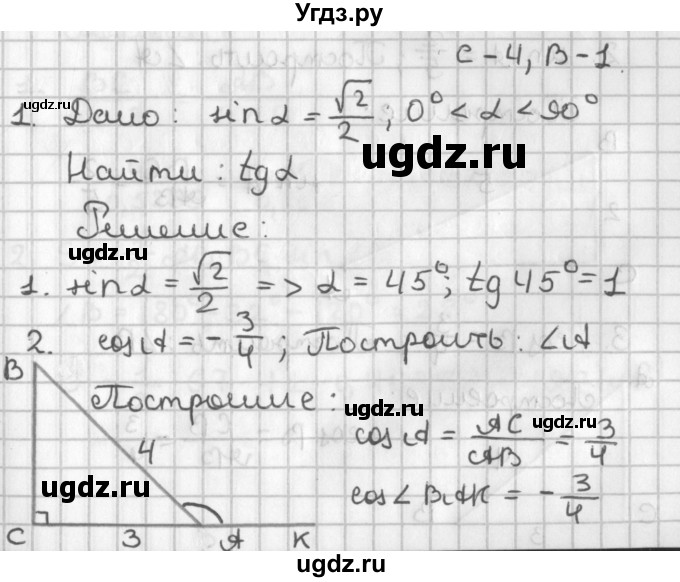 Угдз.ру
С-4, В-1.
ugdz.ru
1. Дано: sin α = √2/2; 0° < α < 90°
ugdz.ru
Найти: tg α
Решение:
ugdz.ru
1. sin α = √2/2 => α = 45°; tg 45° = 1
2. cos A = -3/4; Построить: ∠A
B
Построение:
ugdz.ru
ugdz.ru
cos A = AC/AB = 3/4
4
ugdz.ru
cos∠BAK = -3/4
C 3 A K
ugdz.ru